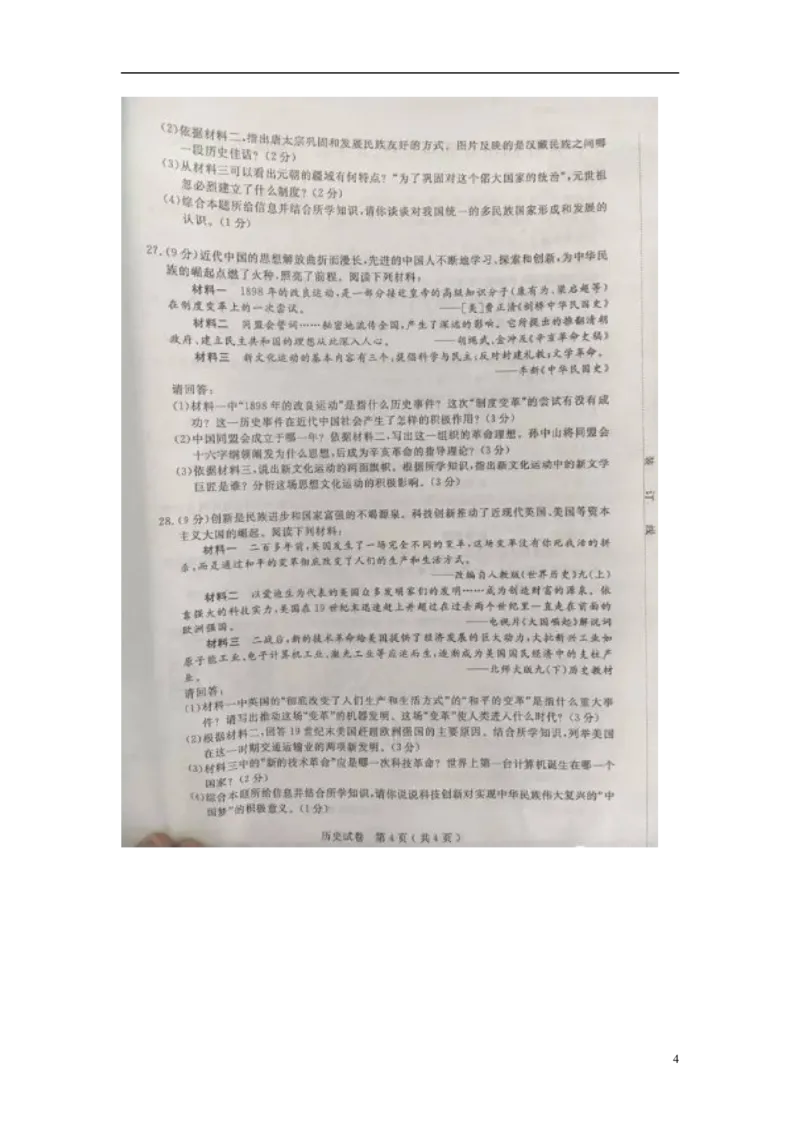 (2)依据材料二,指出唐太宗巩固和发展民族友好的方式。图片反映的是汉藏民族之间哪
一段历史佳话?(2分)
(3)从材料三可以看出元朝的疆域有何特点?“为了巩固对这个偌大国家的统治”,元世祖
忽必烈建立了什么制度?(2分)
(4)综合本题所给信息并结合所学知识,请你谈谈对我国统一的多民族国家形成和发展的
认识。(1分)
27.(9分)近代中国的思想解放曲折而漫长,先进的中国人不断地学习、探索和创新,为中华民
族的崛起点燃了火种,照亮了前程。阅读下列材料:
材料一 1898年的改良运动,是一部分接近皇帝的高级知识分子(康有为、梁启超等)
在制度变革上的一次尝试。 ——[美]费正清《剑桥中华民国史》
材料二 同盟会誓词……秘密地流传全国,产生了深远的影响。它所提出的推翻清朝
政府、建立民主共和国的理想从此深入人心。 ——胡绳武、金冲及《辛亥革命史稿》
材料三 新文化运动的基本内容有三个:提倡科学与民主;反对封建礼教;文学革命。
——李新《中华民国史》
请回答:
(1)材料一中“1898年的改良运动”是指什么历史事件?这次“制度变革”的尝试有没有成
功?这一历史事件在近代中国社会产生了怎样的积极作用?(3分)
(2)中国同盟会成立于哪一年?依据材料二,写出这一组织的革命理想。孙中山将同盟会
十六字纲领阐发为什么思想,后成为辛亥革命的指导理论?(3分)
(3)依据材料三,说出新文化运动的两面旗帜。根据所学知识,指出新文化运动中的新文学
巨匠是谁?分析这场思想文化运动的积极影响。(3分)
28.(9分)创新是民族进步和国家富强的不竭源泉。科技创新推动了近现代英国、美国等资本
主义大国的崛起。阅读下列材料:
材料一 二百多年前,英国发生了一场完全不同的变革,这场变革没有你死我活的拼
杀,而是通过和平的变革彻底改变了人们的生产和生活方式。
——改编自人教版《世界历史》九(上)
材料二 以爱迪生为代表的美国众多发明家们的发明……成为创造财富的源泉。依
靠强大的科技实力,美国在19世纪末迅速赶上并超过在过去两个世纪里一直走在前面的
欧洲强国。 ——电视片《大国崛起》解说词
材料三 二战后,新的技术革命给美国提供了经济发展的巨大动力,大批新兴工业如
原子能工业、电子计算机工业、激光工业等应运而生,逐渐成为美国国民经济中的支柱产
业。 ——北师大版九(下)历史教材
请回答:
(1)材料一中英国的“彻底改变了人们生产和生活方式”的“和平的变革”是指什么重大事
件?请写出推动这场“变革”的机器发明。这场“变革”使人类进入什么时代?(3分)
(2)根据材料二,回答19世纪末美国赶超欧洲强国的主要原因。结合所学知识,列举美国
在这一时期交通运输业的两项新发明。(3分)
(3)材料三中的“新的技术革命”应是哪一次科技革命?世界上第一台计算机诞生在哪一个
国家?(2分)
(4)综合本题所给信息并结合所学知识,请你说说科技创新对实现中华民族伟大复兴的“中
国梦”的积极意义。(1分)
历史试卷 第4页(共4页)
装
订
线
4